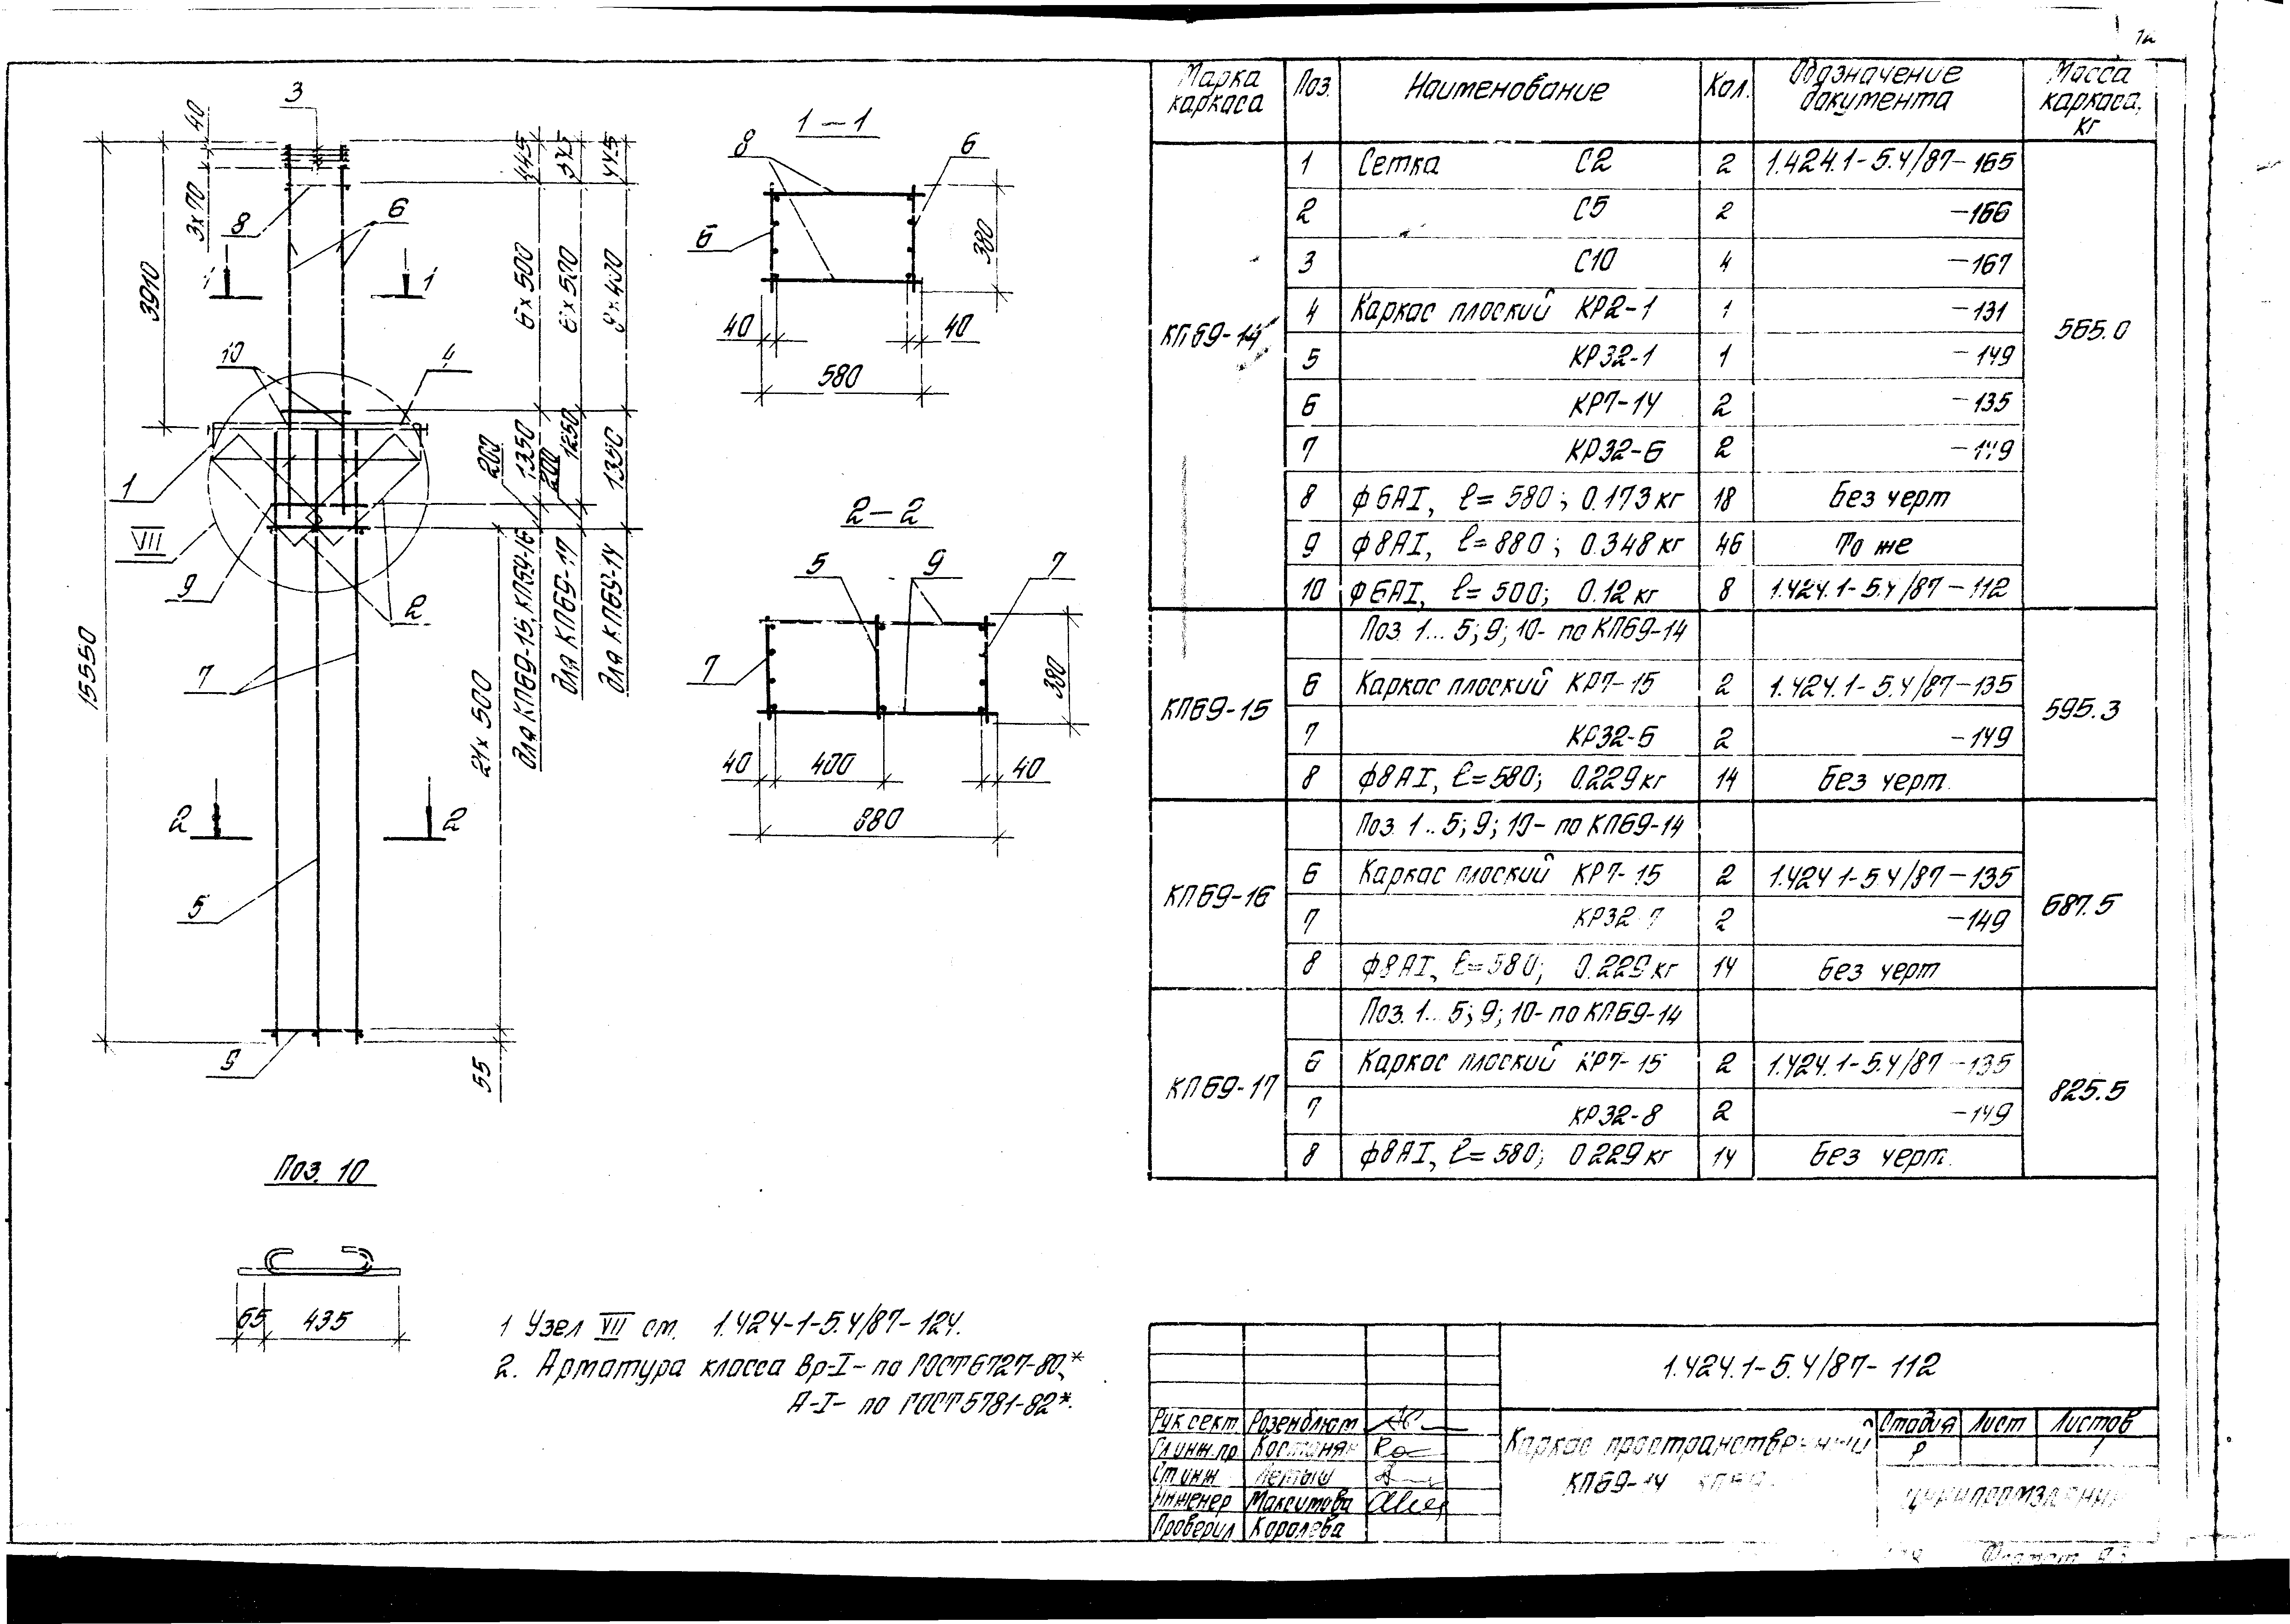 12
3
40
3х70
8
6
1
1
3910
10
4
1
VII
9
2
15550
7
2
2
5
9
445
545
445
6х500
6х500
8х400
200
1350
200
1250
1350
для КП69-15, КП69-16
для КП69-17
для КП69-14
21х500
55
1-1
8
6
6
380
40
40
580
2-2
5
9
7
7
380
40
400
40
880
Поз. 10
65
435
1 Узел VII см. 1.424-1-5.4/87-124.
2. Арматура класса Вр-I- по ГОСТ6727-80,*
А-I- по ГОСТ5781-82*.
Марка каркаса Поз. Наименование Кол. Обозначение документа Масса каркаса, кг
КП69-14 565.0
1 Сетка С2 2 1.424.1-5.4/87-165
2 С5 2 -166
3 С10 4 -167
4 Каркас плоский КР2-1 1 -131
5 КР32-1 1 -149
6 КР7-14 2 -135
7 КР32-6 2 -149
8 ф6АI, ℓ=580; 0.173кг 18 Без черт
9 ф8АI, ℓ=880; 0.348кг 46 То же
10 ф6АI, ℓ=500; 0.12кг 8 1.424.1-5.4/87-112
КП69-15 595.3
Поз. 1... 5; 9; 10- по КП69-14
6 Каркас плоский КР7-15 2 1.424.1-5.4/87-135
7 КР32-6 2 -149
8 ф8АI, ℓ=580; 0.229кг 14 Без черт.
КП69-16 687.5
Поз. 1..5; 9; 10- по КП69-14
6 Каркас плоский КР7-15 2 1.424.1-5.4/87-135
7 КР32-7 2 -149
8 ф8АI, ℓ=580; 0.229кг 14 Без черт
КП69-17 825.5
Поз. 1... 5; 9; 10- по КП69-14
6 Каркас плоский КР7-15 2 1.424.1-5.4/87-135
7 КР32-8 2 -149
8 ф8АI, ℓ=580; 0229кг 14 Без черт.
1.424.1-5.4/87-112
Рук.сект. Розенблюм
Гл.инж.пр. Костанян
Ст инж Летыш
Инженер Максимова
Проверил Королева
Каркас пространственный
КП69-14
Стадия Лист Листов
Р 1
Формат